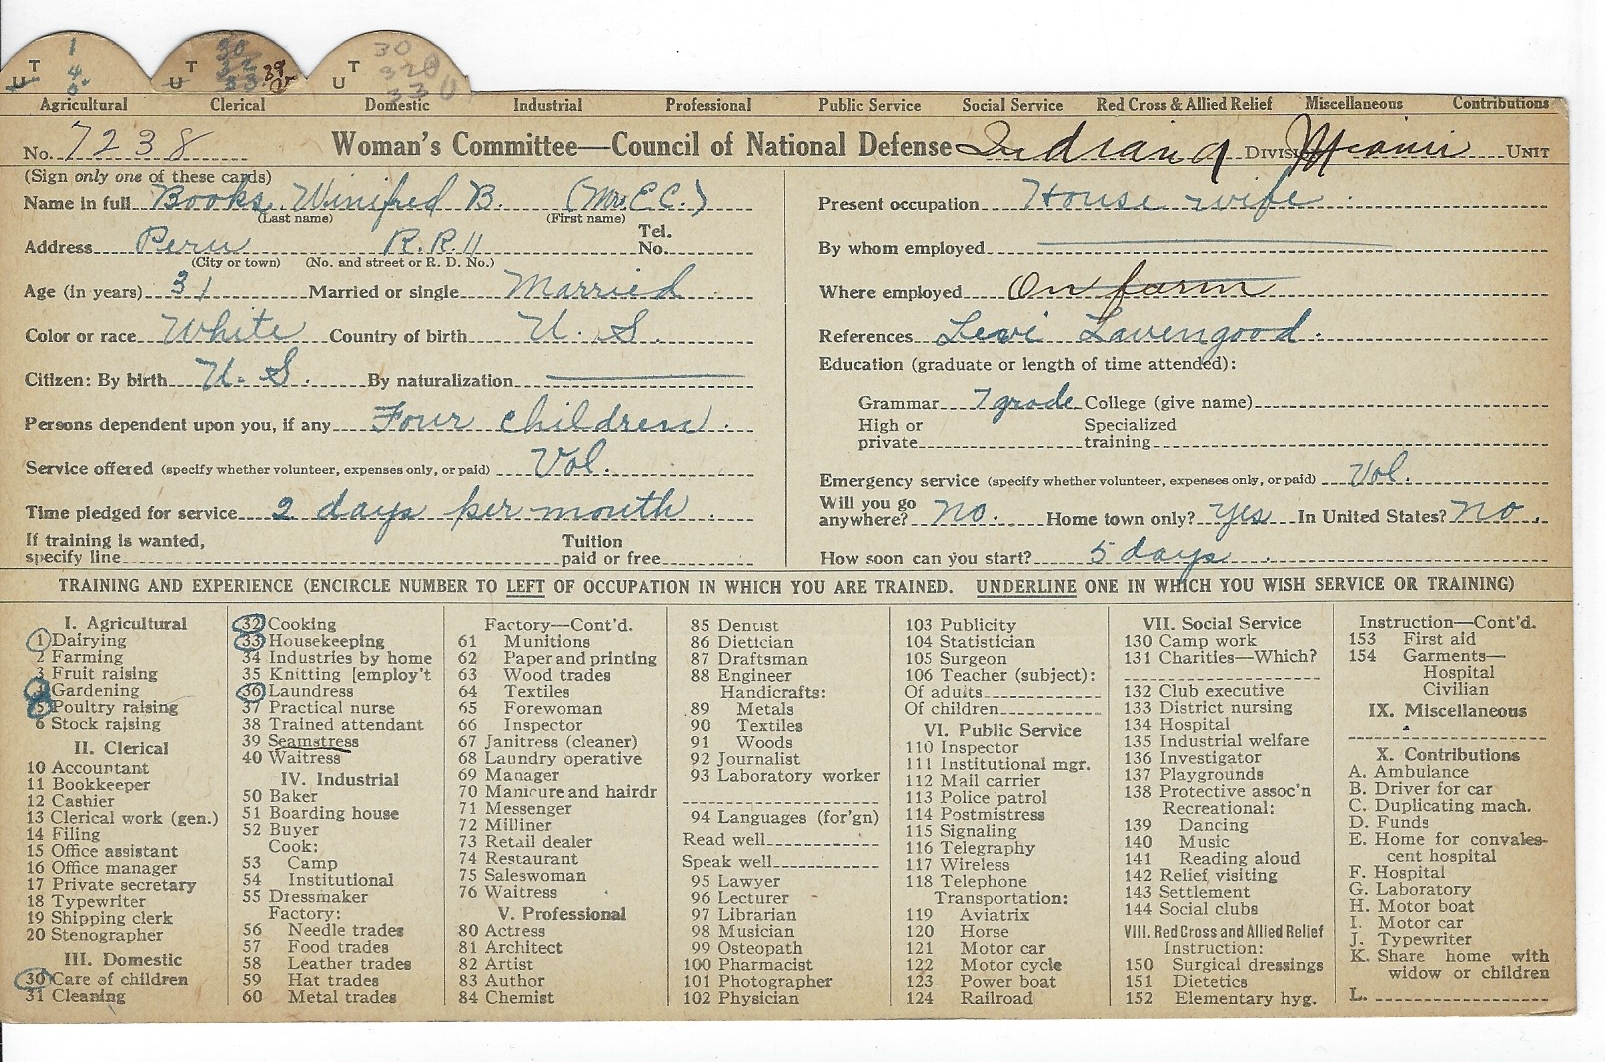 T 1 T 30 T 30
U 4 U 32 39 U 320
5 33 33 U
Agricultural Clerical Domestic Industrial Professional Public Service Social Service Red Cross & Allied Relief Miscellaneous Contributions
No. 7238 Woman's Committee—Council of National Defense Indiana Division Miami Unit
(Sign only one of these cards)
Name in full Books, Winifred B. (Mrs. E.C.)
(Last name) (First name)
Address Peru R.R. 11 Tel. No.
(City or town) (No. and street or R. D. No.)
Age (in years) 31 Married or single Married
Color or race White Country of birth U. S.
Citizen: By birth U. S. By naturalization
Persons dependent upon you, if any Four children.
Service offered (specify whether volunteer, expenses only, or paid) Vol.
Time pledged for service 2 days per month.
If training is wanted, specify line Tuition paid or free
Present occupation House wife.
By whom employed
Where employed On farm
References Levi Lavengood.
Education (graduate or length of time attended):
Grammar 7 grade College (give name)
High or private Specialized training
Emergency service (specify whether volunteer, expenses only, or paid) Vol.
Will you go anywhere? No. Home town only? Yes In United States? No.
How soon can you start? 5 days.
TRAINING AND EXPERIENCE (ENCIRCLE NUMBER TO LEFT OF OCCUPATION IN WHICH YOU ARE TRAINED. UNDERLINE ONE IN WHICH YOU WISH SERVICE OR TRAINING)
I. Agricultural
1 Dairying
2 Farming
3 Fruit raising
4 Gardening
5 Poultry raising
6 Stock raising
II. Clerical
10 Accountant
11 Bookkeeper
12 Cashier
13 Clerical work (gen.)
14 Filing
15 Office assistant
16 Office manager
17 Private secretary
18 Typewriter
19 Shipping clerk
20 Stenographer
III. Domestic
30 Care of children
31 Cleaning
32 Cooking
33 Housekeeping
34 Industries by home
35 Knitting [employ't
36 Laundress
37 Practical nurse
38 Trained attendant
39 Seamstress
40 Waitress
IV. Industrial
50 Baker
51 Boarding house
52 Buyer
Cook:
53 Camp
54 Institutional
55 Dressmaker
Factory:
56 Needle trades
57 Food trades
58 Leather trades
59 Hat trades
60 Metal trades
Factory—Cont'd.
61 Munitions
62 Paper and printing
63 Wood trades
64 Textiles
65 Forewoman
66 Inspector
67 Janitress (cleaner)
68 Laundry operative
69 Manager
70 Manicure and hairdr
71 Messenger
72 Milliner
73 Retail dealer
74 Restaurant
75 Saleswoman
76 Waitress
V. Professional
80 Actress
81 Architect
82 Artist
83 Author
84 Chemist
85 Dentist
86 Dietician
87 Draftsman
88 Engineer
Handicrafts:
89 Metals
90 Textiles
91 Woods
92 Journalist
93 Laboratory worker
94 Languages (for'gn)
Read well
Speak well
95 Lawyer
96 Lecturer
97 Librarian
98 Musician
99 Osteopath
100 Pharmacist
101 Photographer
102 Physician
103 Publicity
104 Statistician
105 Surgeon
106 Teacher (subject):
Of adults
Of children
VI. Public Service
110 Inspector
111 Institutional mgr.
112 Mail carrier
113 Police patrol
114 Postmistress
115 Signaling
116 Telegraphy
117 Wireless
118 Telephone
Transportation:
119 Aviatrix
120 Horse
121 Motor car
122 Motor cycle
123 Power boat
124 Railroad
VII. Social Service
130 Camp work
131 Charities—Which?
132 Club executive
133 District nursing
134 Hospital
135 Industrial welfare
136 Investigator
137 Playgrounds
138 Protective assoc'n
Recreational:
139 Dancing
140 Music
141 Reading aloud
142 Relief visiting
143 Settlement
144 Social clubs
VIII. Red Cross and Allied Relief
Instruction:
150 Surgical dressings
151 Dietetics
152 Elementary hyg.
Instruction—Cont'd.
153 First aid
154 Garments—
Hospital
Civilian
IX. Miscellaneous
X. Contributions
A. Ambulance
B. Driver for car
C. Duplicating mach.
D. Funds
E. Home for convales-
cent hospital
F. Hospital
G. Laboratory
H. Motor boat
I. Motor car
J. Typewriter
K. Share home with
widow or children
L.